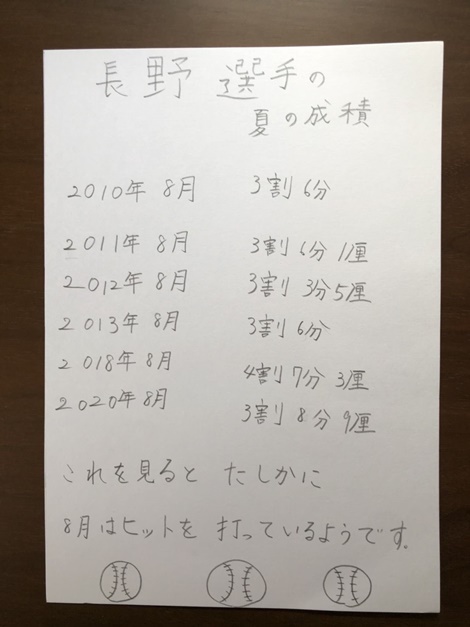 長野 選手の
夏の成積
2010年 8月 3割 6分
2011年 8月 3割 6分 1厘
2012年 8月 3割 3分5厘
2013年 8月 3割 6分
2018年 8月 4割 7分 3厘
2020年 8月 3割 8分 9厘
これを見ると たしかに
8月はヒットを 打っているようです。